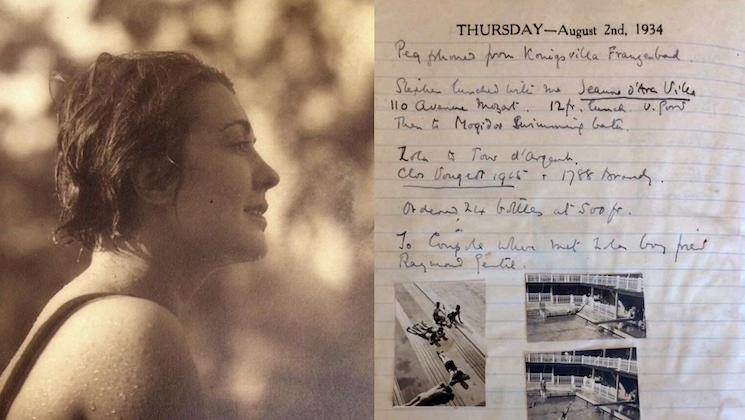 THURSDAY—August 2nd, 1934
Peg phoned from Konigsvilla Franzenbad.
Stephen lunched with me Jeanne d'Arc Villa
110 Avenue Mozart. 12fr. lunch v. good
Then to Molitor Swimming bath.
Lola to Tour d'Argent.
Clos Vougeot + 1788 Brandy.
Ordered 24 bottles at 500 fr.
To Coupole where met Lolas boy friend
Raymond